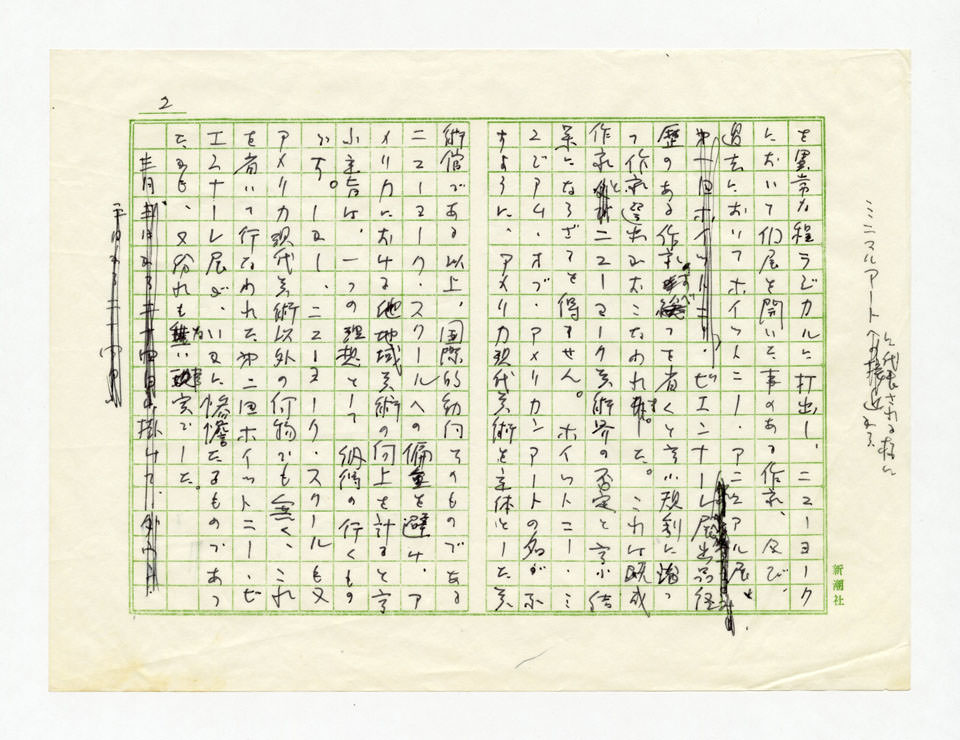 2
ミニマルアートへの接近する
に代表される様に
を異常な程ラジカルに打出し、ニューヨーク
において個展を開いた事のある作家、及び、
過去においてホイットニー・アニュアル展と
第一回ホイットニー・ビエンナーレ展出品経
歴のある作家すべてを省くと言ふ規制に則っ
て作家選出がおこなわれました。これは既成
作家とニューヨーク美術界の否定と言ふ結
果にならざるを得ません。ホイットニー・ミ
ュジアム・オブ・アメリカンアートの名が示
すように、アメリカ現代美術を主体とした美
術館である以上、国際的動向そのものである
ニューヨーク・スクールへの偏重を避け、ア
メリカにおける地域美術の向上を計ると言
ふ主旨は、一つの理想として納得の行くもの
です。しかし、ニューヨーク・スクールも又
アメリカ現代美術以外の何物でも無く、これ
を省いて行なわれた第二回ホイットニー・ビ
エンナーレ展が、いかに惨憺たるものであっ
たかも、又紛れも無い事実でした。
新潮社